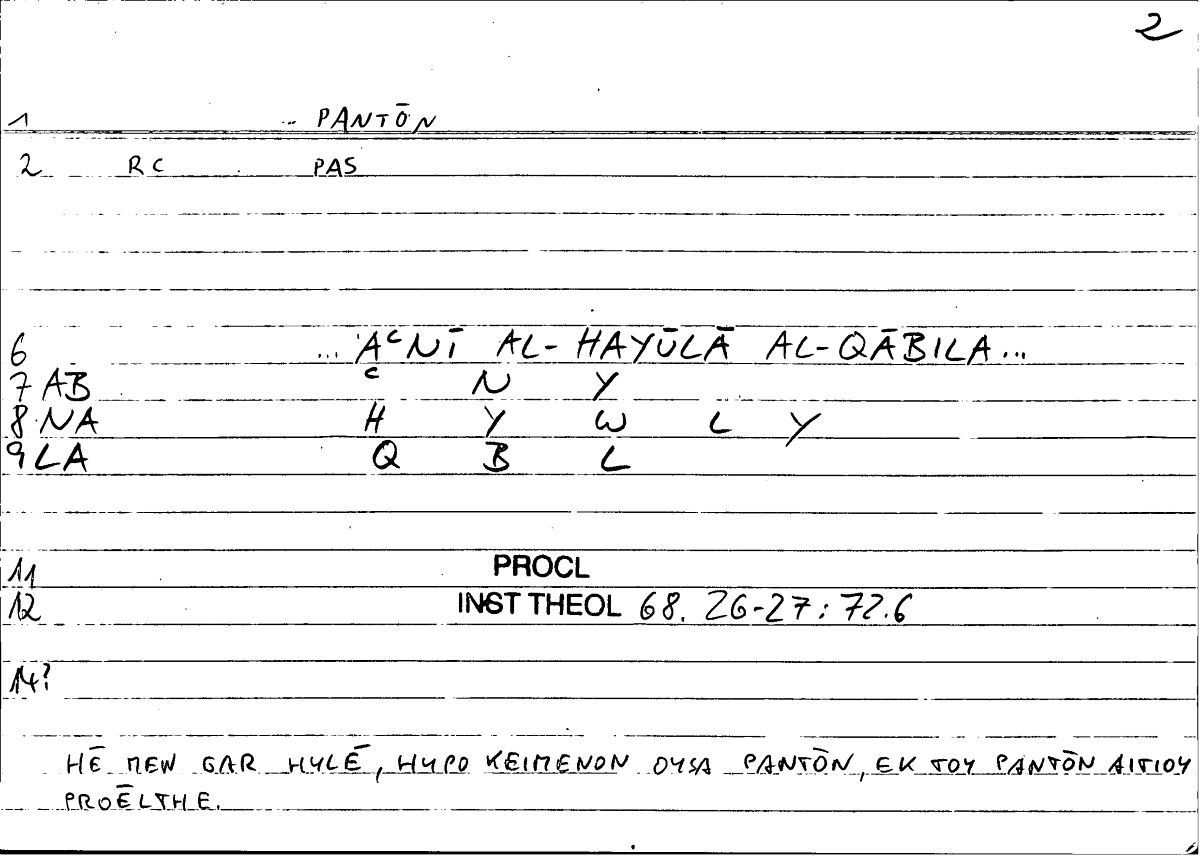 2
1 ... PANTŌN
2 RC PAS
6 ... AᶜNĪ AL-HAYŪLĀ AL-QĀBILA...
7 AB ᶜ N Y
8 NA H Y W L Y
9 LA Q B L
11 PROCL
12 INST THEOL 68. 26-27; 72.6
14?
HĒ MEN GAR HYLĒ, HYPO KEIMENON OYSA PANTŌN, EK TOY PANTŌN AITIOY
PROĒLTHE.